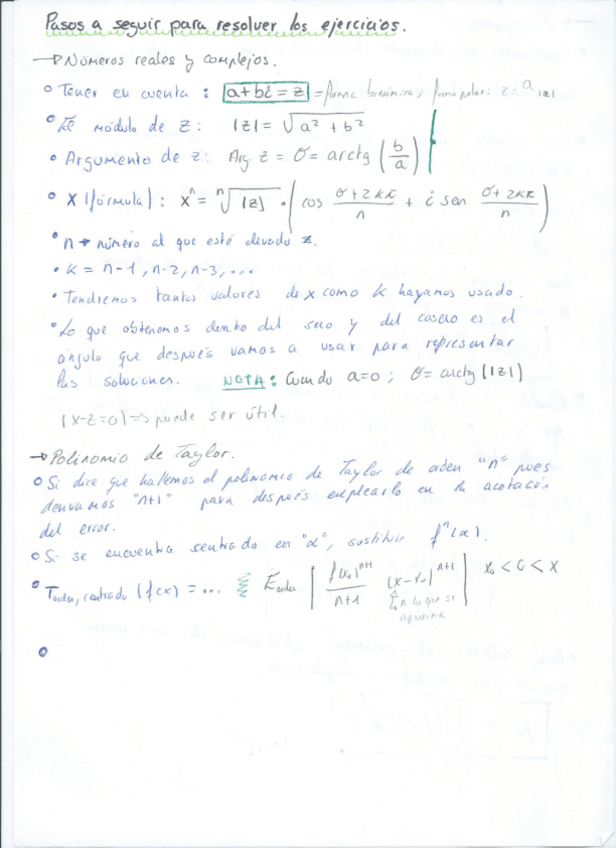 Pasos a seguir para resolver los ejercicios.
→ Números reales y complejos.
• Tener en cuenta : |a+bi = z| = forma binómica, forma polar: z = a |z|
• El módulo de z: |z| = √(a² + b²)
• Argumento de z: Arg z = σ = arctg (b/a)
• X (fórmula) : xⁿ = ⁿ√|z| · (cos (σ+2kπ)/n + i sen (σ+2kπ)/n)
• n → número al que está elevado z.
• K = n-1, n-2, n-3, ...
• Tendremos tantos valores de x como K hayamos usado.
• Lo que obtenemos dentro del seno y del coseno es el
ángulo que después vamos a usar para representar
las soluciones. NOTA: Cuando a=0 ; θ = arctg (|z|)
(x-z=0) => puede ser útil.
→ Polinomio de Taylor.
• Si dice que hallemos el polinomio de Taylor de orden "n" pues
derivamos "n+1" para después emplearlo en la acotación
del error.
• Si se encuentra centrado en "α", sustituir fⁿ(α).
• T orden, centrado (f(x) = ... E orden | f(x₀)ⁿ⁺¹/n+1 (x-x₀)ⁿ⁺¹ | x₀ < c < x
en lo que se
aproxima